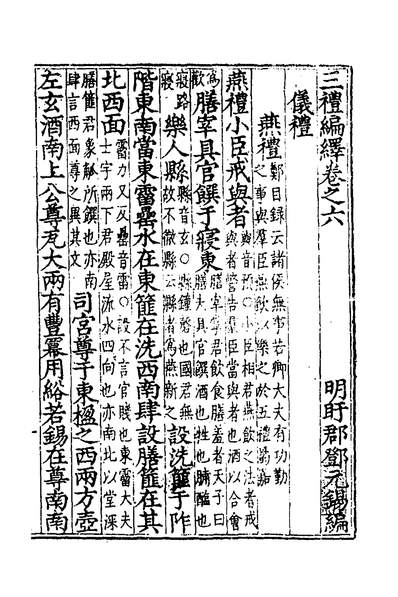 三禮編繹卷之六　明盱郡鄧元錫編
儀禮
燕禮 鄭目錄云諸侯無事若卿大夫有功勤之事與羣臣燕飲以樂之於五禮屬嘉
燕禮小臣戒與者 與音預○小臣相君燕飲之法者戒與者警告羣臣當與者也酒以合會
為歡 膳宰具官饌于寢東 膳宰掌君飲食膳羞者天子曰膳夫具官饌酒也牲也脯醢也
寢路寢 樂人縣 縣音玄○縣鐘磬也國君無故不徹縣云縣者為燕新之 設洗篚于阼
階東南當東霤罍水在東篚在洗西南肆設膳篚在其
北西面 霤力又反罍音雷○設不言官賤也東霤大夫士字兩下君殿屋流水四向也亦南北以堂深
膳篚君象觚所饌也亦南肆言西面尊之異其文 司宮尊于東楹之西兩方壺
左玄酒南上公尊瓦大兩有豐冪用綌若錫在尊南南